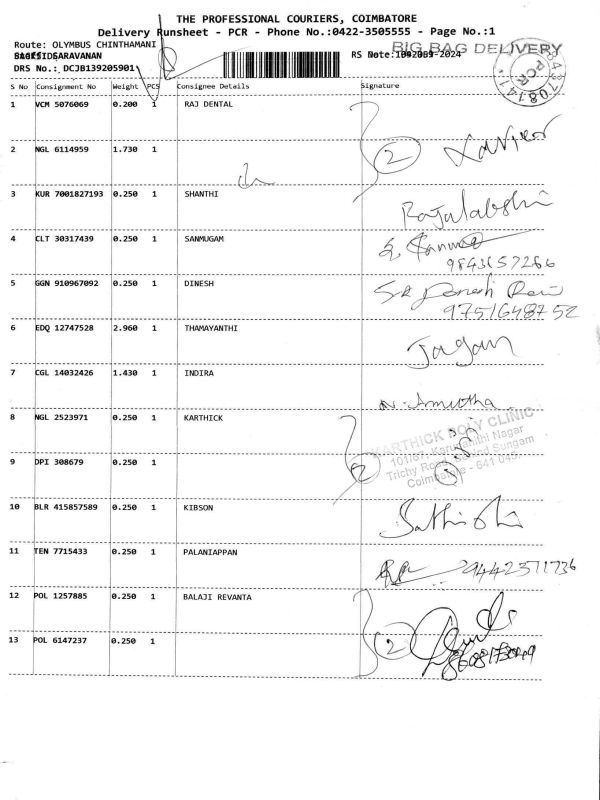 THE PROFESSIONAL COURIERS, COIMBATORE
Delivery Runsheet - PCR - Phone No.:0422-3505555 - Page No.:1
Route: OLYMBUS CHINTHAMANI
BIG BAG DELIVERY
SARAVANAN
RS No
DRS No.: DCJB139205901
S No Consignment No Weight PCS Consignee Details Signature
1 VCM 5076069 0.200 1 RAJ DENTAL
2 NGL 6114959 1.730 1
2
Xavier
3 KUR 7001827193 0.250 1 SHANTHI
Rajalakshmi
4 CLT 30317439 0.250 1 SANMUGAM
9843157266
5 GGN 910967092 0.250 1 DINESH
9751648752
6 EDQ 12747528 2.960 1 THAMAYANTHI
Jagan
7 CGL 14032426 1.430 1 INDIRA
N. Amutha
8 NGL 2523971 0.250 1 KARTHICK
KARTHICK POLY CLINIC
9 DPI 308679 0.250 1
2
Trichy Road, Sungam
Coimbatore - 641 045.
10 BLR 415857589 0.250 1 KIBSON
11 TEN 7715433 0.250 1 PALANIAPPAN
9442371736
12 POL 1257885 0.250 1 BALAJI REVANTA
13 POL 6147237 0.250 1
2